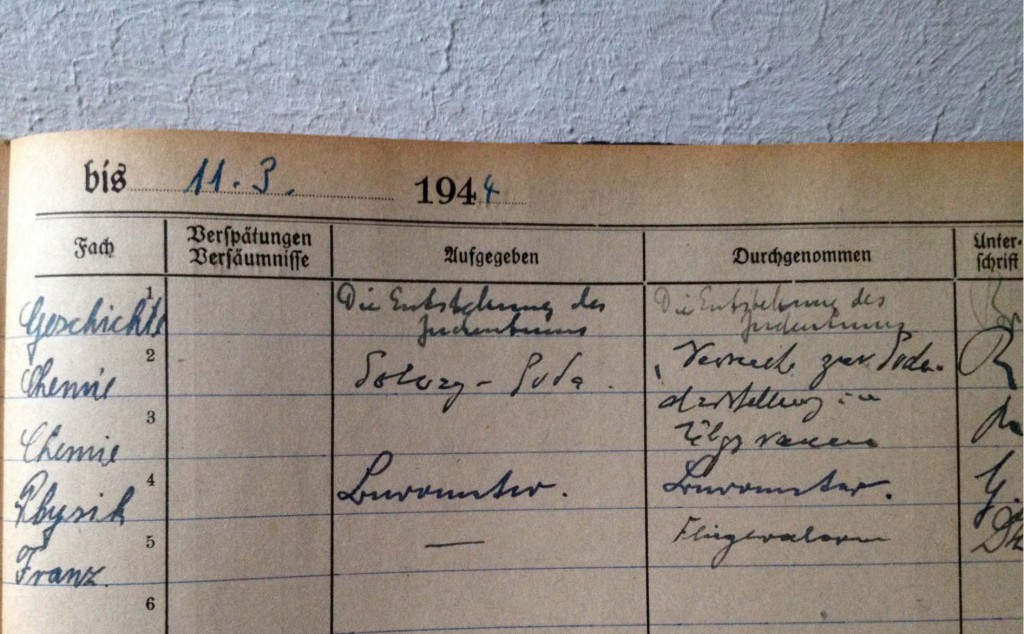 bis 11. 3. 1944
Fach Verspätungen Versäumnisse Aufgegeben Durchgenommen Unter-schrift
1
Geschichte Die Entstehung des Judentums Die Entstehung des Judentums
2
Chemie Solvay - Soda. Versuch zur Soda-
3
Chemie darstellung in
4
Physik Barometer. Barometer.
5
Franz. — Fliegeralarm
6